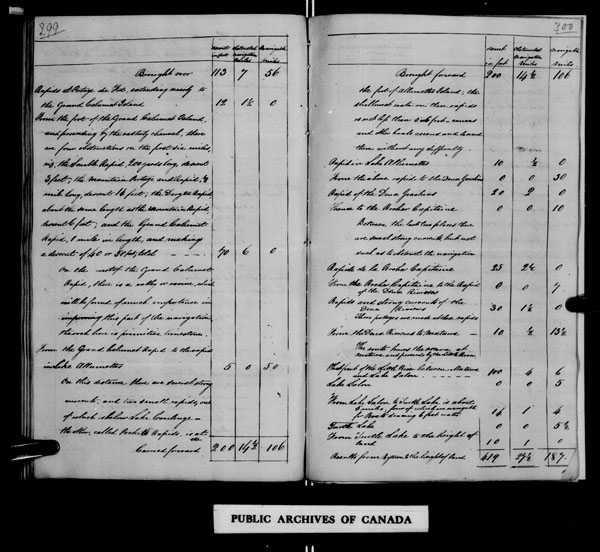 299
descent in feet
obstructed navigation miles
navigable miles
Brought over 113 7 56
Rapids at Portage du Fort, extending nearly to
the Grand Calumet Island 12 1½ 0
From the foot of the Grand Calumet Island,
and proceeding by the westerly channel, there
are four obstructions in the first six miles,
viz, the Rapid, 200 yards long, descent
3 feet; the Mountain Portage and Rapid, ¼
mile long, descent 14 feet; the Rapid
about the same length as the Mountain Rapid
descent 6 feet; and the Grand Calumet
Rapid, 1 mile in length, and making
a descent of 40 or 50 feet, total 70 6 0
On the west of the Grand Calumet
Rapid, there is a valley or ravine, which
will be found of much importance in
improving this part of the navigation,
the rock here is primitive limestone.
From the Grand Calumet Rapid to the rapid
in Lake Allumettes 5 0 50
On this distance there are small strong
currents, and two small rapids, one
of which is below Lake Coulonge —
the other, called Rapids, is at
Carried forward 200 14½ 106
300
descent in feet
obstructed navigation miles
navigable miles
Brought forward 200 14½ 106
the foot of Allumettes Island; the
shallowest water on these rapids
is not less than 5 or 6 feet — canoes
and other boats ascend and descend
them without any difficulty.
Rapid in Lake Allumettes 10 ½ 0
From the above rapid to the Deux Joachim 0 0 30
Rapid of the Deux Joachim 20 2 0
Thence to the Rocher Capitaine 0 0 10
Between the last two places there
are small strong currents, but not
such as to obstruct the navigation
Rapids de la Roche Capitaine 23 2½ 0
From the Rocher Capitaine to the Rapid
of the Deux Rivieres 0 0 7
Rapids and strong currents of the
Deux Rivieres 30 1½ 0
These portages are small
From the Deux Rivieres to Matawa — 10 ½ 13½
The route leaves the Ottawa at
Matawa and proceeds by the Little River
That part of the Little River between Matawa
and Lake Talon 100 4 6
Lake Talon 0 0 5
From Lake Talon to Turtle Lake is about
5 miles, four of which are navigable
for Boats drawing 4 feet water 16 1 4
Turtle Lake 0 0 5½
From Turtle Lake to the height of
land 10 1 0
Results from Bytown to the height of land. 419 27½ 187.
PUBLIC ARCHIVES OF CANADA